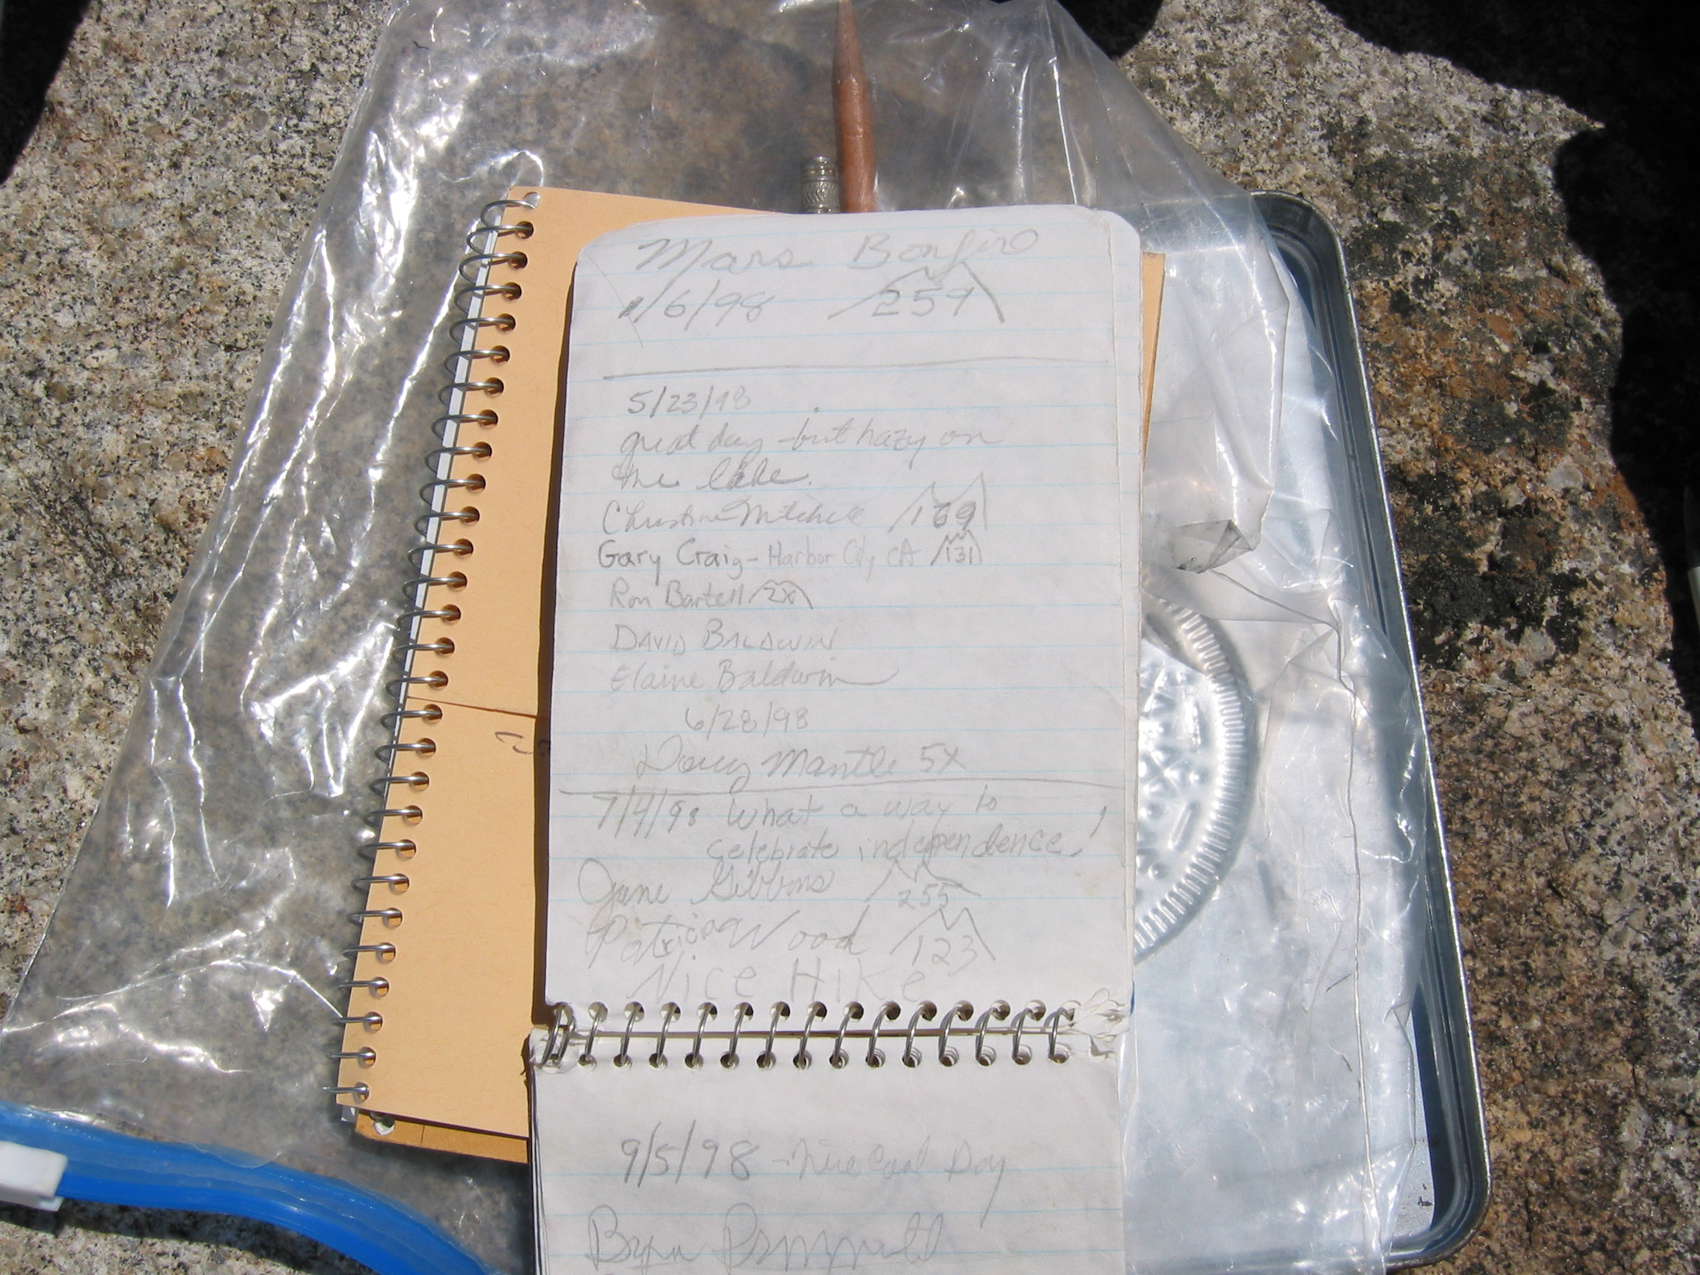 Mars Bonfire
1/6/98 259
5/23/98
great day - but hazy on
the lake.
Christine Mitchell 169
Gary Craig - Harbor City CA 131
Ron Bartell 2x
DAVID BALDWIN
Elaine Baldwin
6/28/98
Doug Mantle 5x
7/4/98 What a way to
celebrate independence!
Jane Gibbons 255
Patricia Wood 123
NICE HIKE
9/5/98 - Nice Cool Day